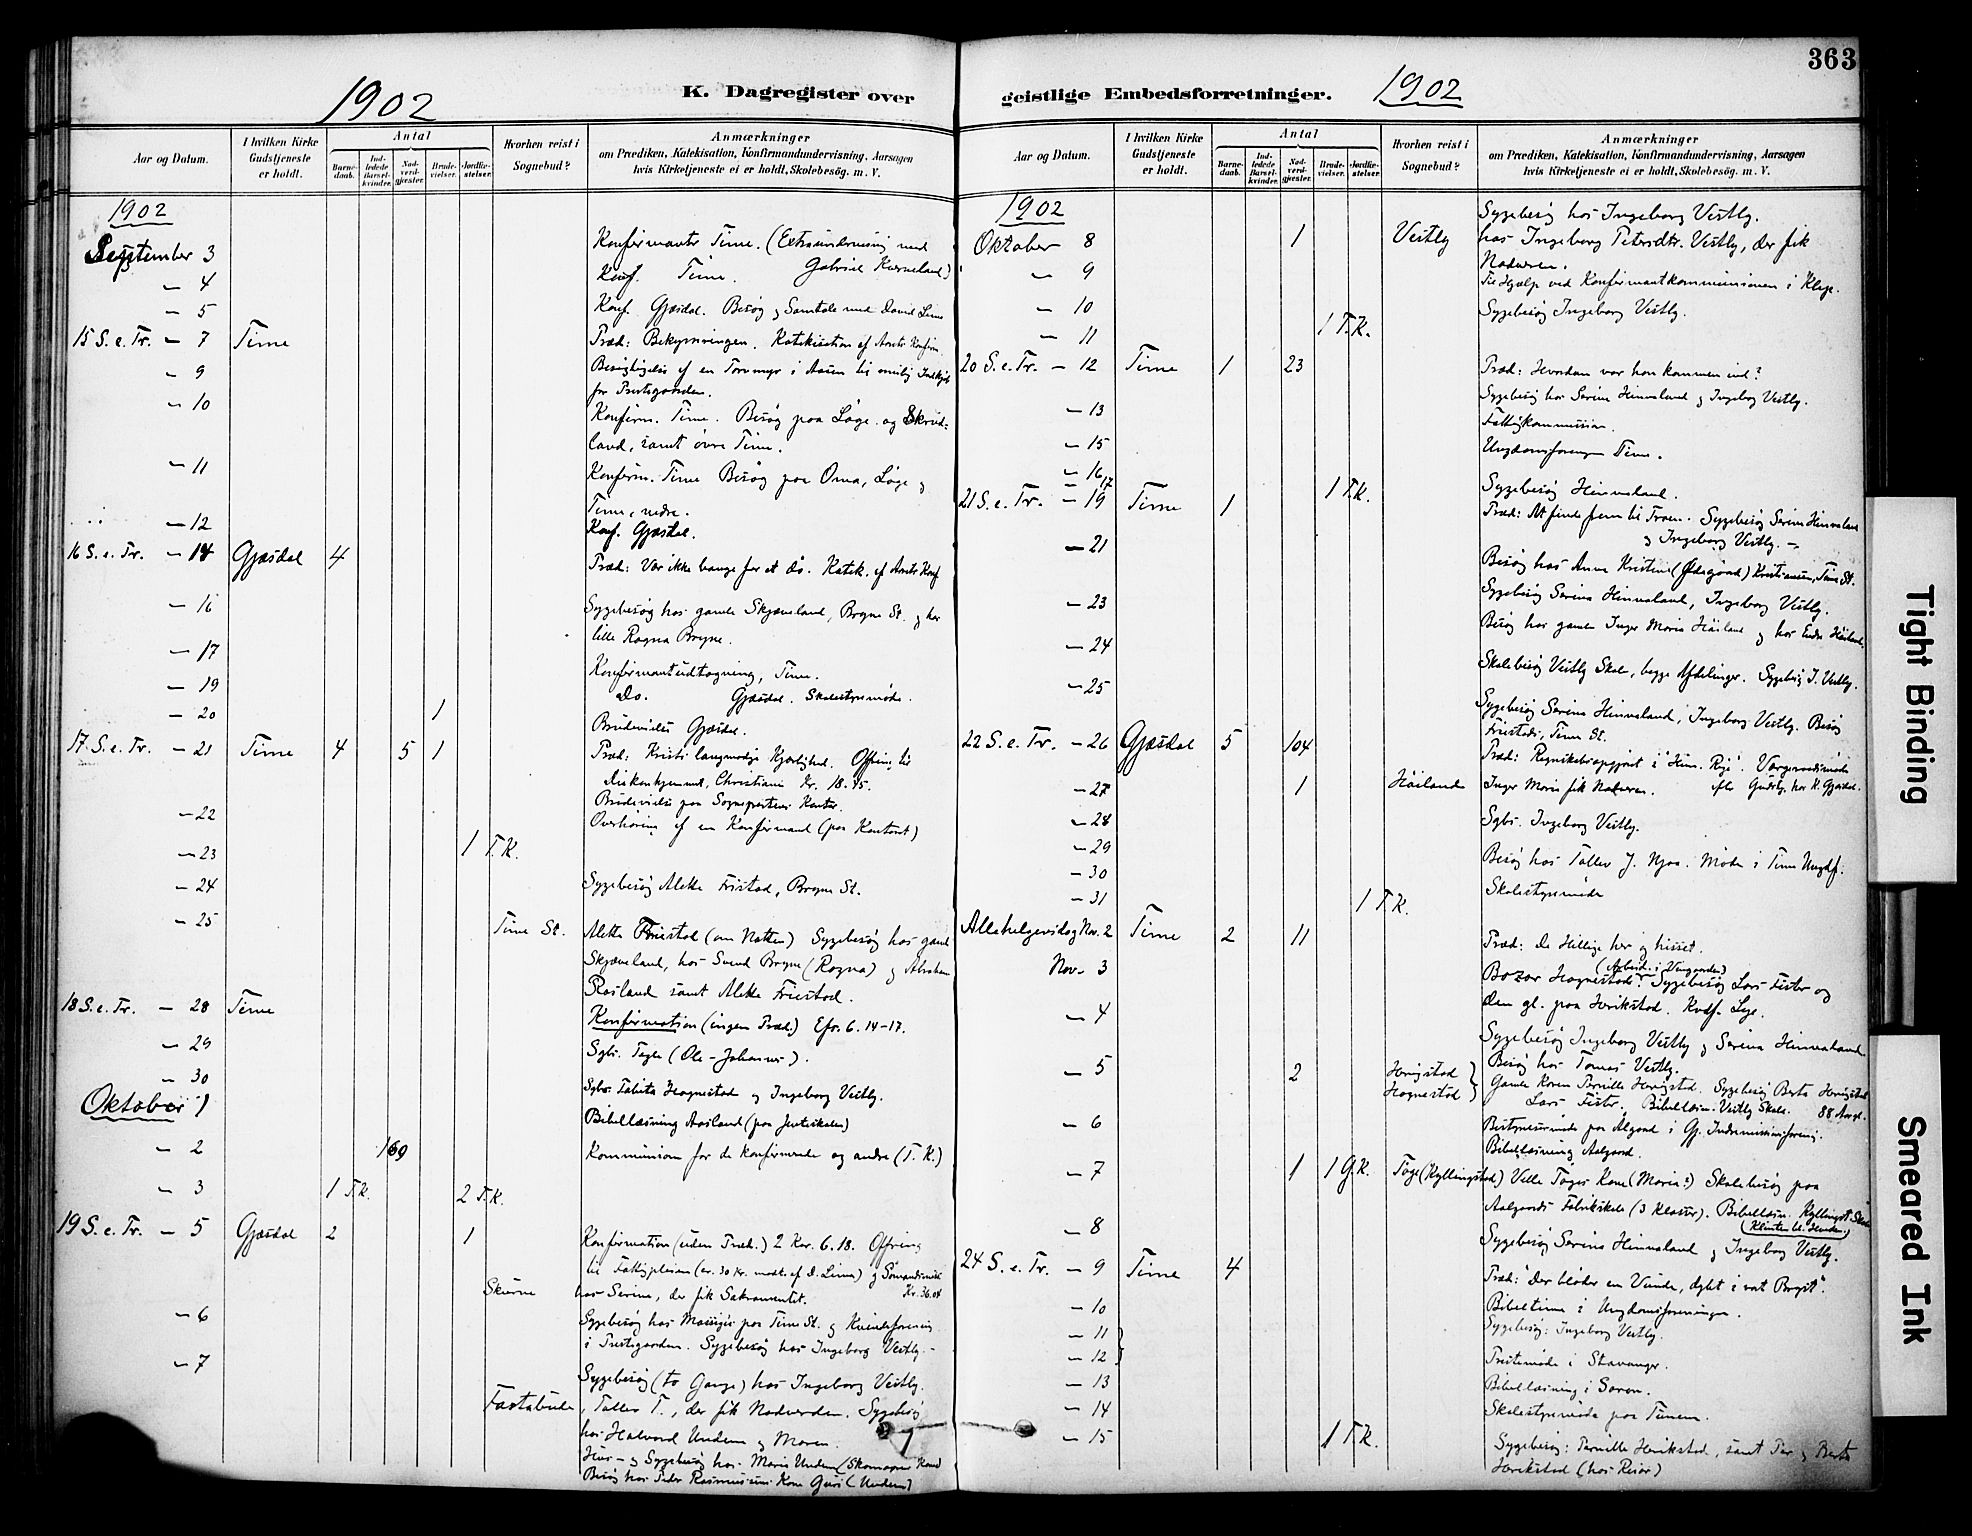 363
1902
K. Dagregister over
Aar og Datum.
I hvilken Kirke Gudstjeneste er holdt.
Antal
Barne-daab.
Ind-ledede Barsel-kvinder.
Nad-verd-gjæster.
Brude-vielser.
Jordfæ-stelser.
Hvorhen reist i Sognebud?
Anmærkninger
om Prædiken, Katekisation, Konfirmandundervisning, Aarsagen
hvis Kirketjeneste ei er holdt, Skolebesøg. m. V.
1902
September 3 Konfirmanter Time. (Extraundervisning med
Gabriel Kverneland)
— 4 Konf. Time.
— 5 Konf. Gjæsdal. Besøg og Samtale med David Lima
15 S. e. Tr. — 7 Time Præd: Bekymringen. Katekisation af Aarets Konfirm.
— 9 Besigtigelse af en Torvmyr i Aasen til mulig Indkjøb
for Præstegaarden.
— 10 Konfirm. Time. Besøg paa Løge og Skrud-
land, samt øvre Time.
— 11 Konfirm. Time Besøg paa Oma, Løge og
Time, nedre.
— 12 Konf. Gjæsdal.
16 S. e. Tr. — 14 Gjæsdal 4 Præd: Vær ikke bange for at dø. Katek. af Aarets Konf
— 16 Sygebesøg hos gamle Skjæveland, Bryne St. og hos
lille Ragna Bryne.
— 17 Konfirmantudtagning, Time.
— 19 Do. Gjæsdal. Skolestyremøde.
— 20 1 Brudevielse Gjæsdal.
17 S. e. Tr. — 21 Time 4 5 1 Præd: Kristi langmodige Kjærlighed. Ofring til
Diakonhjemmet, Christiania Kr. 18.45.
Brudevielse paa Sognepræstens Kontor.
— 22 Overhøring af en Konfirmand (paa Kontoret)
— 23 1 T. K.
— 24 Sygebesøg Alette Fristad, Bryne St.
— 25 Time St. Alette Friestad (om Natten) Sygebesøg hos gamle
Skjæveland, hos Svend Bryne (Ragna) og Abraham
Rosland samt Alette Friestad.
18 S. e. Tr. — 28 Time Konfirmation (ingen Præd.) Efes. 6. 14-17.
— 29 Sgbs. Tegle (Ole-Johannes).
— 30 Sgbs. Tabita Hognestad og Ingeborg Vestly.
Oktober 1 Bibellæsning Aasland (paa Jenteskolen)
— 2 169 Kommunion for de konfirmerede og andre (T. K.)
— 3 1 T. K. 2 T. K.
19 S. e. Tr. — 5 Gjæsdal 2 1 Konfirmation (uden Præd.) 2 Kor. 6. 18. Ofring
til Fattigpleien (ca. 30 Kr. modt. af D. Lima) og Sømandsmiss.
Kr. 36.04
Skurve hos Serine, der fik Sakramentet.
— 6 Sygebesøg hos Mauritz paa Time St. og Kvindeforening
i Præstegaarden. Sygebesøg hos Ingeborg Vestly. —
— 7 Sygebesøg (to Gange) hos Ingeborg Vestly.
Fastabude, Tollev T., der fik Nadverden. Sygebesøg
hos Halvard Undem og Moren.
Hus- og Sygebesøg hos Maria Undem (Skomager Kone)
Besøg hos Peder Rasmussens Kone Guri (Undem)
geistlige Embedsforretninger.
1902
Aar og Datum.
I hvilken Kirke Gudstjeneste er holdt.
Antal
Barne-daab.
Ind-ledede Barsel-kvinder.
Nad-verd-gjæster.
Brude-vielser.
Jordfæ-stelser.
Hvorhen reist i Sognebud?
Anmærkninger
om Prædiken, Katekisation, Konfirmandundervisning, Aarsagen
hvis Kirketjeneste ei er holdt, Skolebesøg. m. V.
1902
Sygebesøg hos Ingeborg Vestly.
Oktober 8 1 Vestly hos Ingeborg Petersdtr. Vestly, der fik
Nadveren.
— 9 Til Hjælp ved Konfirmantkommunionen i Klep.
— 10 Sygebesøg Ingeborg Vestly.
— 11 1 T. K.
20 S. e. Tr. — 12 Time 1 23 Præd: Hvordan var han kommen ind?
— 13 Sygebesøg hos Serina Hinnaland og Ingeborg Vestly.
— 15 Fattigkommission.
— 16 Ungdomsforeningen Time.
17 1 T. K. Sygebesøg Hinnaland.
21 S. e. Tr. — 19 Time 1 Præd: At finde frem til Troen. Sygebesøg Serina Hinnaland
og Ingeborg Vestly. —
— 21 Besøg hos Anna Kristine (Ødegaard) Kristiansen, Time St.
— 23 Sygebesøg Serina Hinnaland, Ingeborg Vestly.
— 24 Besøg hos gamle Inger Maria Håiland og hos Endre Håiland.
— 25 Skolebesøg Vestly Skole, begge Afdelinger. Sygebesøg I. Vestly.
Sygebesøg Serina Hinnaland, Ingeborg Vestly. Besøg
Friestads, Time St.
22 S. e. Tr. — 26 Gjæsdal 5 104 Præd: Regnskabsopgjøret i "Him. Rige". Værgeraadsmøde
efter Gudstj. hos K. Gjæsdal.
— 27 1 Håiland Inger Maria fik Nadveren.
— 28 Sgbs. Ingeborg Vestly.
— 29
— 30 Besøg hos Tollev J. Njaa. Møde i Time Ungdf.
— 31 1 T. K. Skolestyremøde
Allehelgensdag Nov. 2 Time 2 11 Præd: De Hellige her og hisset.
(Arbeid. i Vingaarden)
Nov. 3 Bazar Hognestad. Sygebesøg Lars Fister og
den gl. paa Hvrikstad. Kvdf. Lye.
— 4 Sygebesøg Ingeborg Vestly og Serina Hinnaland
Besøg hos Tomas Vestly.
— 5 2 Herigstad } Gamle Karen Pernille Herigstad. Sygebesøg Berta Herigstad
Hognestad } Lars Fister. Bibellæsn. Vestly Skole. 88 Aar gl.
— 6 Bestyrermøde paa Algaard i Gj. Indremissionsforening.
Bibellæsning Aalgaard.
— 7 1 1 G. K. Tøge (Kyllingstad) Velle Tøges Kone (Maria?) Skolebesøg paa
Aalgaards Fabrikskole (3 Klasser). Bibellæsn. Kyllingst. Skole
— 8 Sygebesøg Serina Hinnaland og Ingeborg Vestly.
24 S. e. Tr. — 9 Time 4 Præd: "Der bløder en Vunde, dybt i vat Bryst".
— 10 Bibeltime i Ungdomsforeningen.
— 11 } Sygebesøg: Ingeborg Vestly.
— 12 } Præstemøde i Stavanger.
— 13 Bibellæsning i Saron.
— 14 Skolestyremøde paa Tunem.
— 15 1 T. K. Sygebesøg: Pernille Herikstad, samt Per og Berta
Herikstad (hos Reiar)
Tight Binding
Smeared Ink